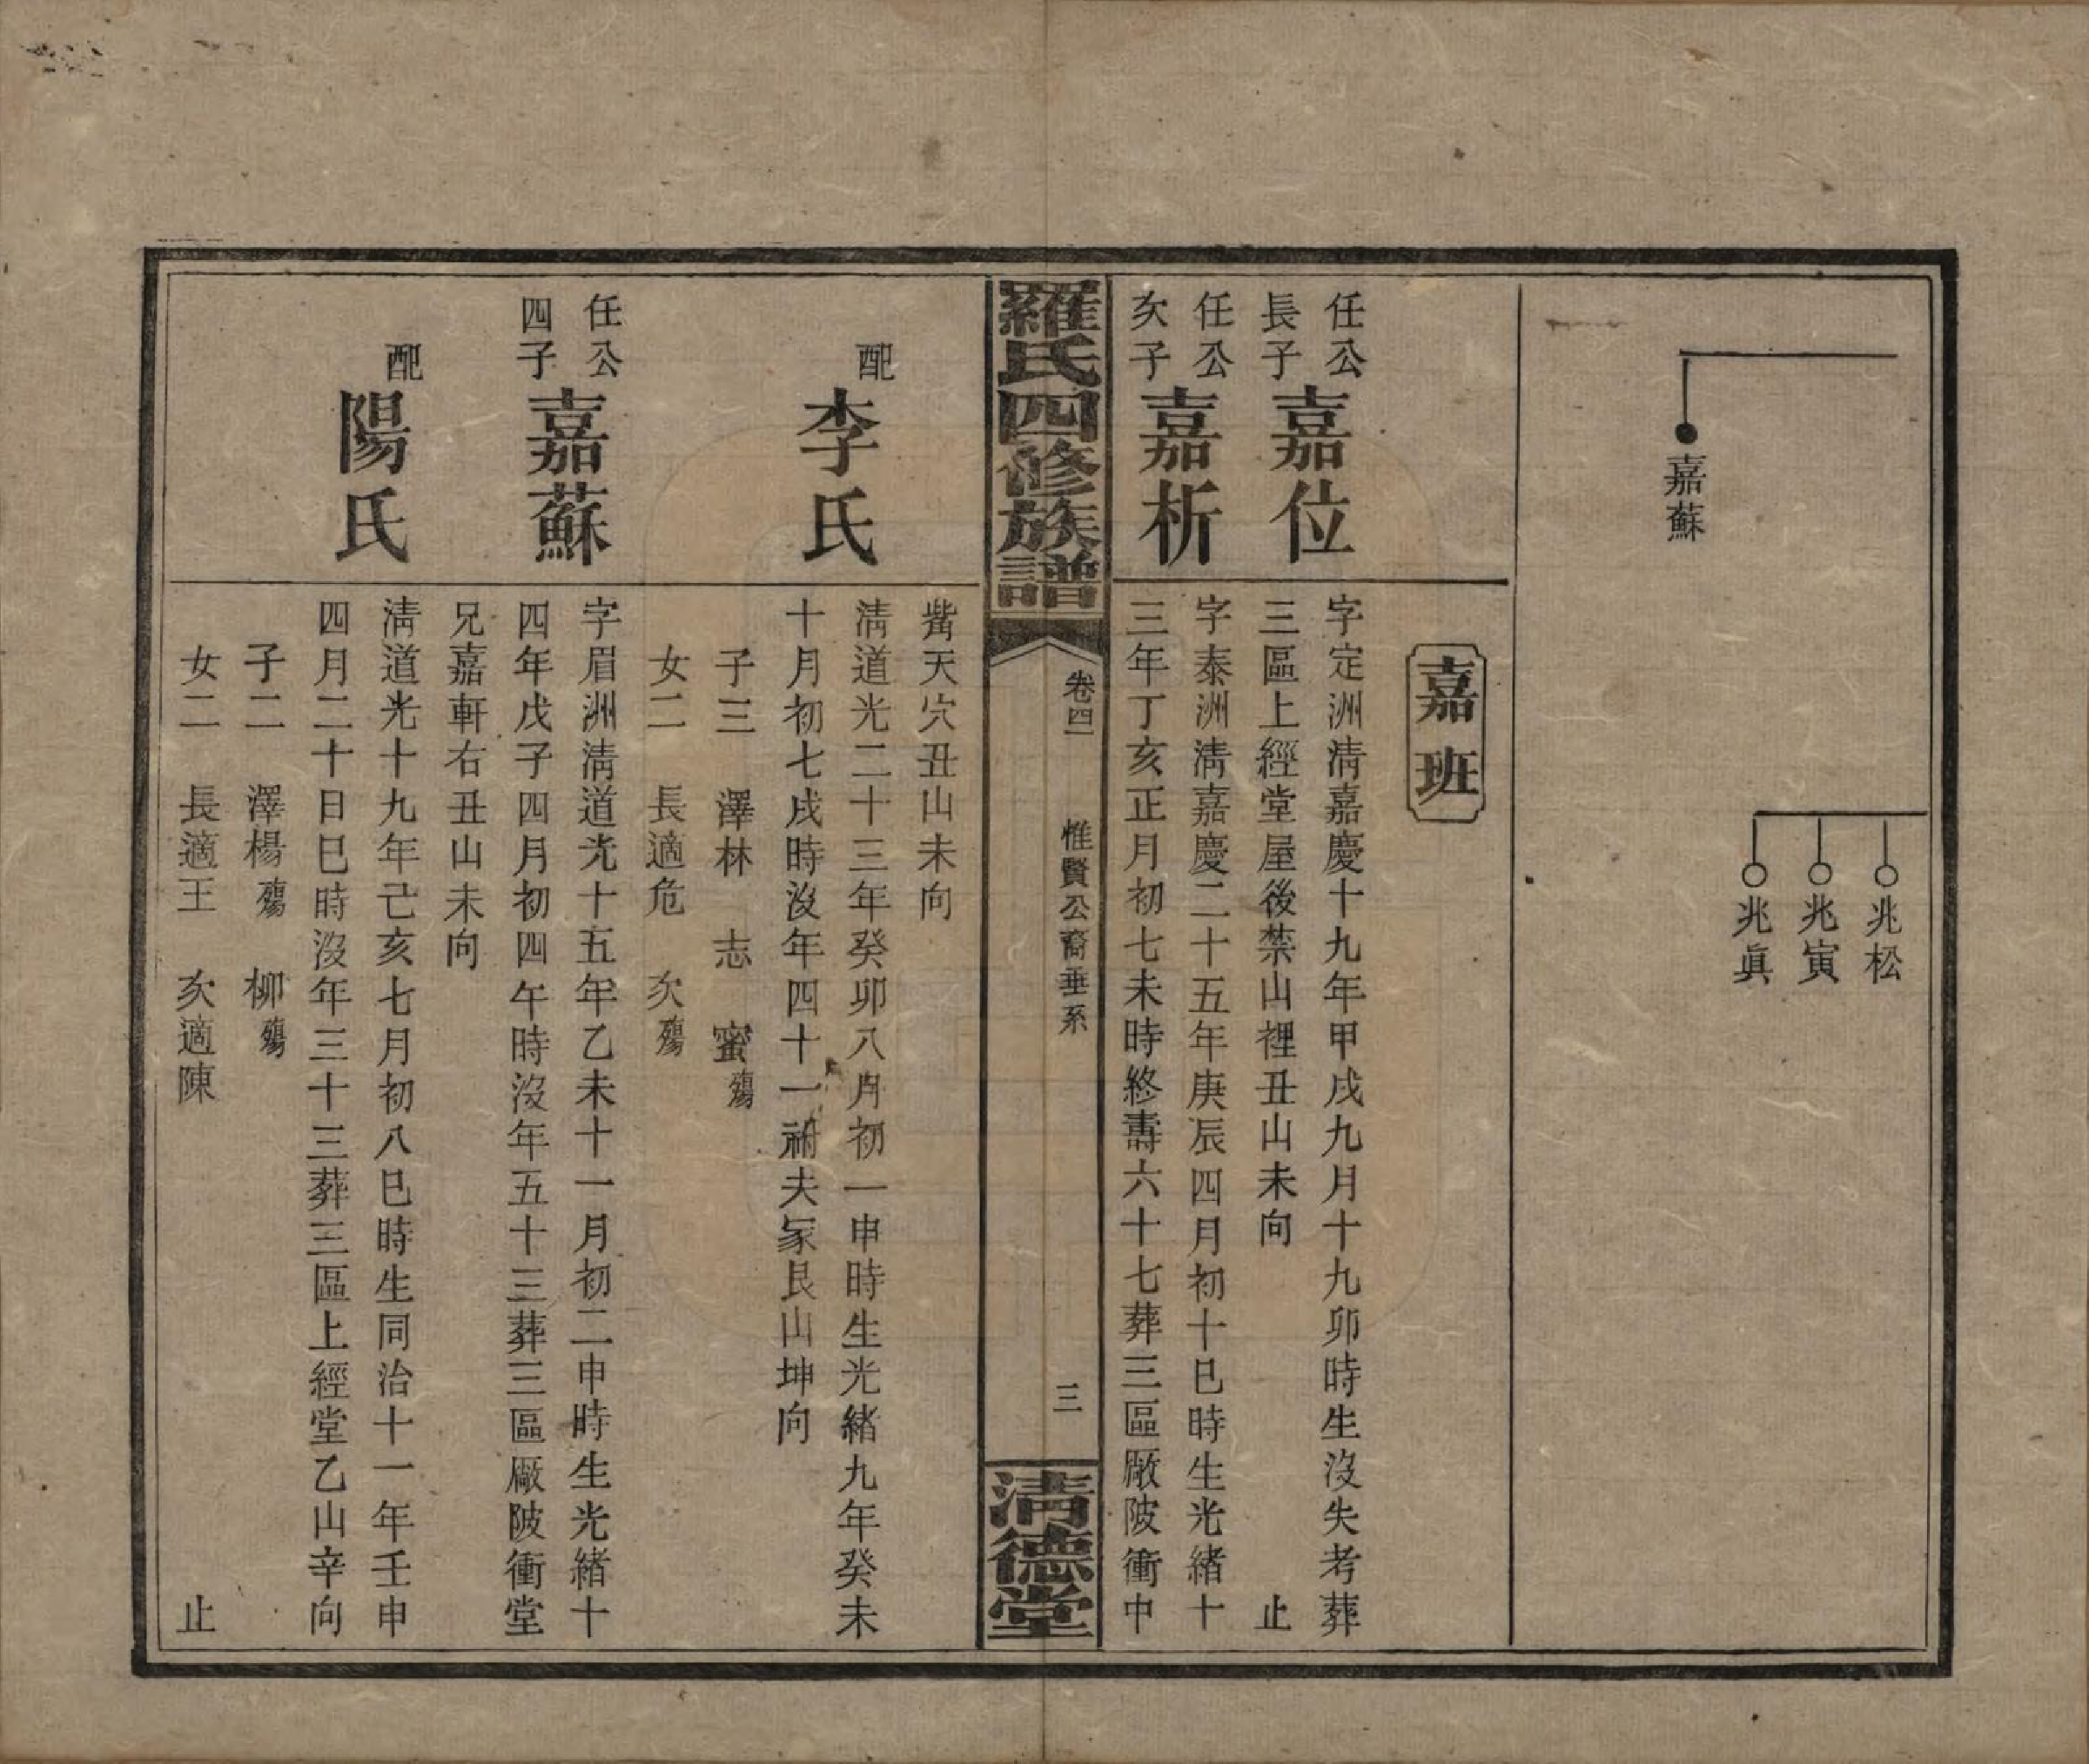 嘉蘇
兆松
兆寅
兆眞
嘉班
任公
長子
嘉位
字定洲淸嘉慶十九年甲戌九月十九卯時生沒失考葬
三區上經堂屋後禁山裡丑山未向 止
任公
次子
嘉析
字泰洲淸嘉慶二十五年庚辰四月初十巳時生光緖十
三年丁亥正月初七未時終壽六十七葬三區厰陂衝中
羅氏四修族譜
卷四
惟賢公裔垂系
三
淸德堂
嘴天穴丑山未向
配
李氏
淸道光二十三年癸卯八月初一申時生光緖九年癸未
十月初七戌時沒年四十一祔夫冢艮山坤向
子三 澤林 志 蜜殤
女二 長適危 次殤
任公
四子
嘉蘇
字眉洲淸道光十五年乙未十一月初二申時生光緖十
四年戊子四月初四午時沒年五十三葬三區厰陂衝堂
兄嘉軒右丑山未向
配
陽氏
淸道光十九年己亥七月初八巳時生同治十一年壬申
四月二十日巳時沒年三十三葬三區上經堂乙山辛向
子二 澤楊殤 柳殤
女二 長適王 次適陳 止